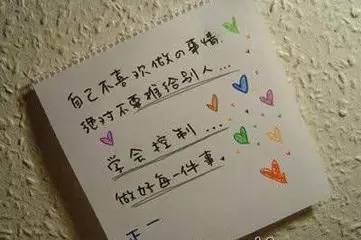 自己不喜欢做の事情.
绝对不要推给别人...
学会控制...
做好每一件事.